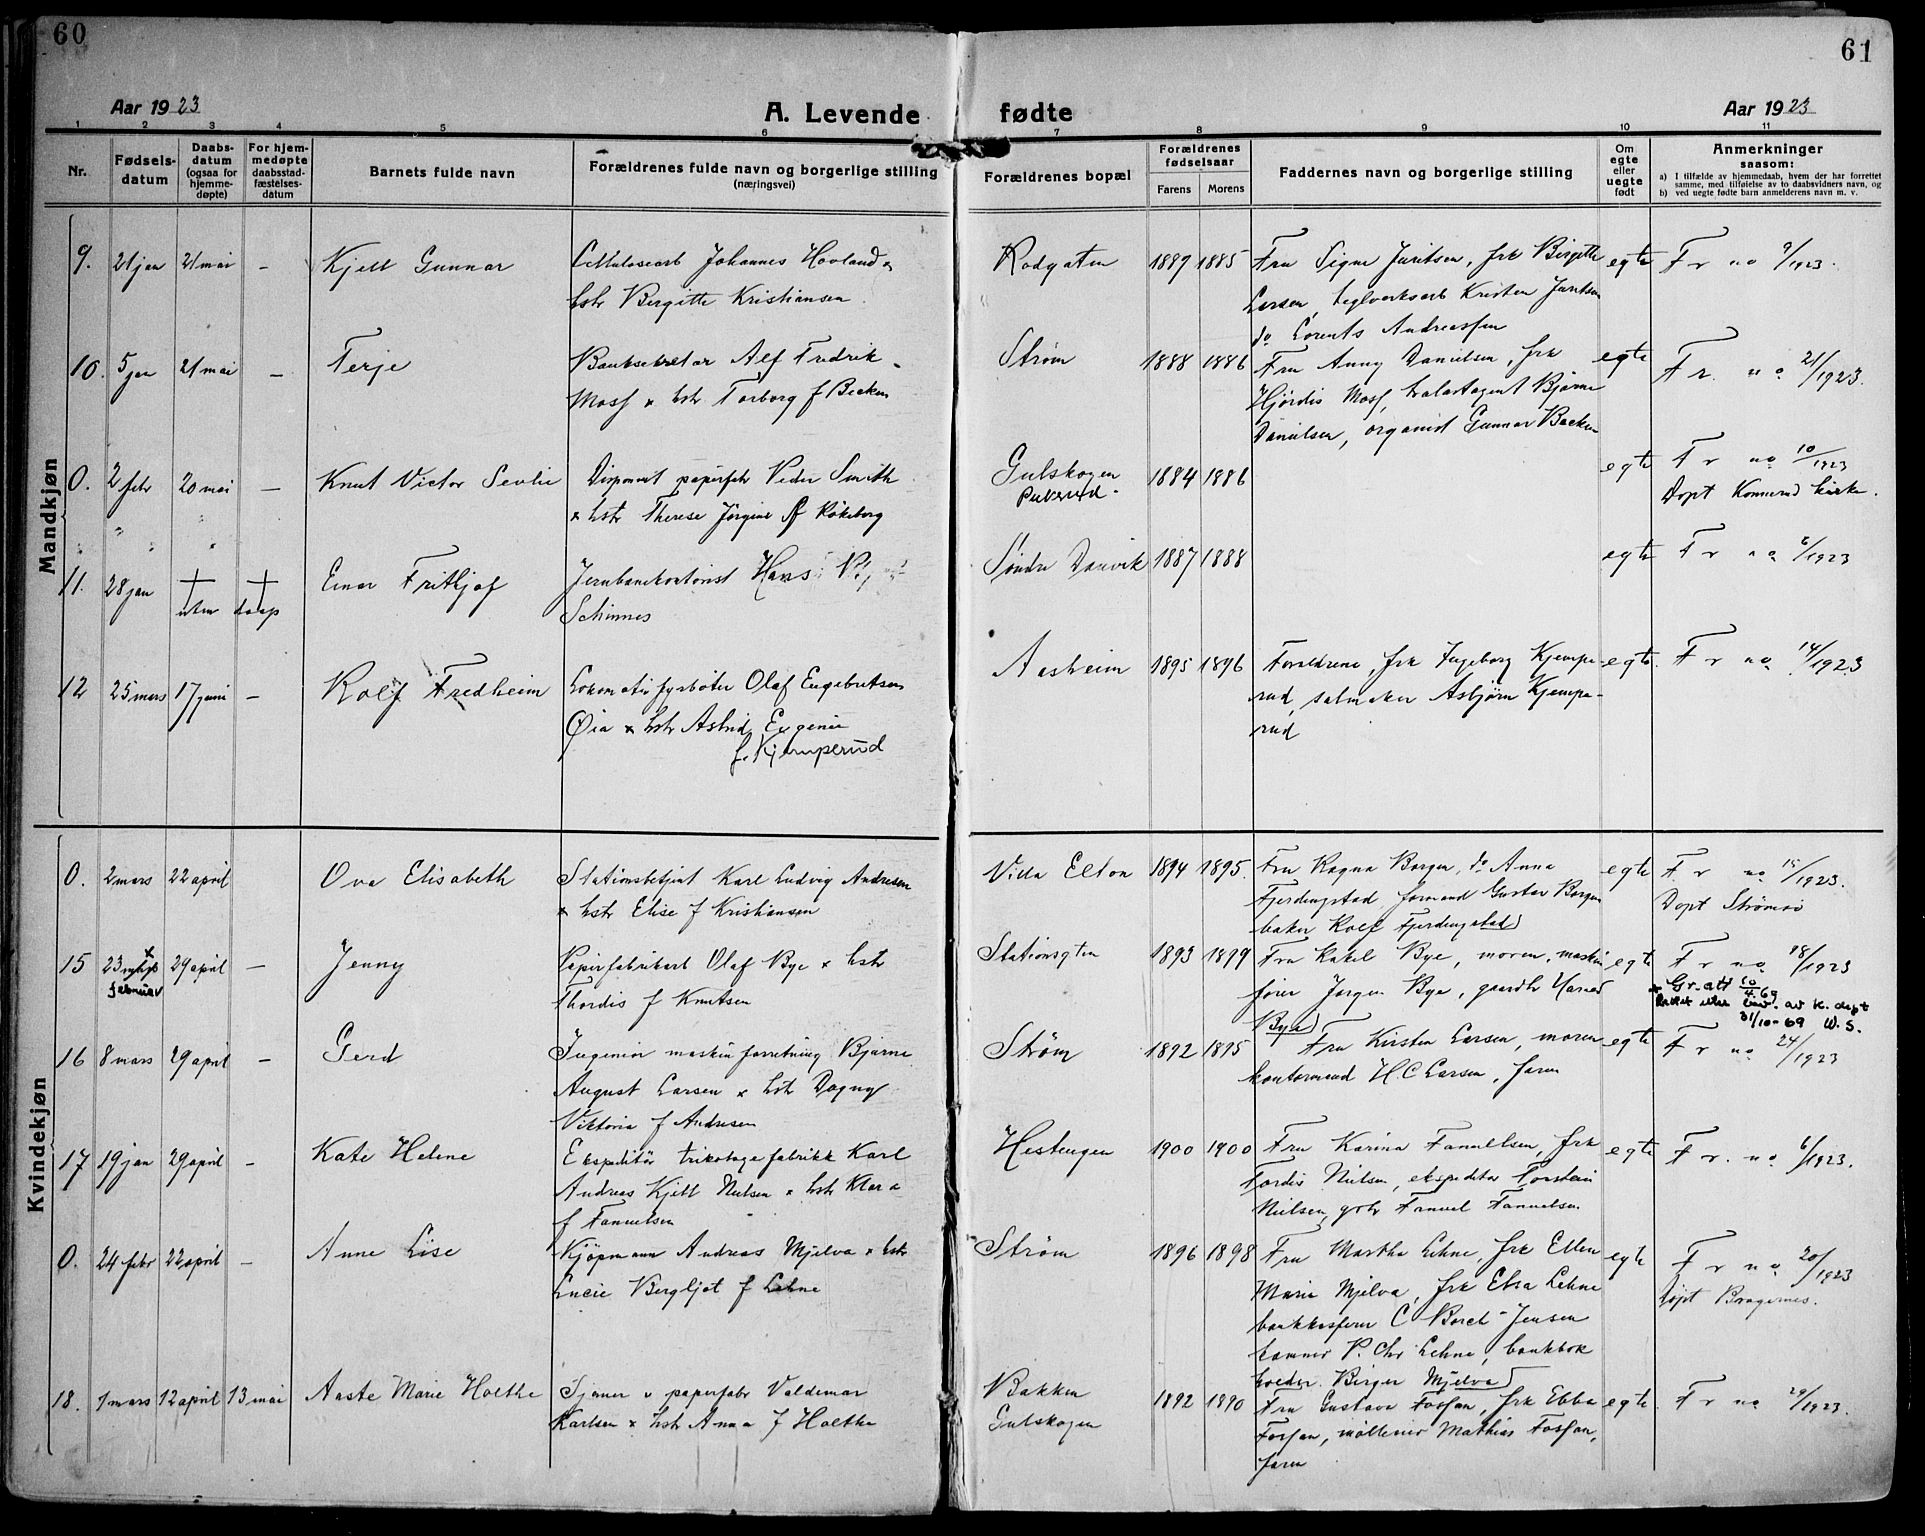 60
61
Aar 1923
A. Levende fødte
Aar 1923
1 2 3 4 5 6 7 8 9 10 11
Nr.
Fødsels-
datum
Daabs-
datum
(ogsaa for
hjemme-
døpte)
For hjem-
medøpte
daabsstad-
fæstelses-
datum
Barnets fulde navn
Forældrenes fulde navn og borgerlige stilling
(næringsvei)
Forældrenes bopæl
Forældrenes
fødselsaar
Farens Morens
Faddernes navn og borgerlige stilling
Om
egte
eller
uegte
født
Anmerkninger
saasom:
a) I tilfælde av hjemmedaab, hvem der har forrettet
samme, med tilføielse av to daabsvidners navn, og
b) ved uegte fødte barn anmelderens navn m. v.
Mandkjøn
9. 21 jan 21 mai – Kjell Gunnar Cellulosearb Johannes Hovland x
hstr Bergitte Kristiansen
Rodgaten 1889 1885 Fru Signe Juritsen, frk Birgitte egte F r no 9/1923.
Larsen, teglverksarb Kristen Juritsen
do Lorents Andreassen
10. 5 jan 21 mai – Terje Banksekretær Alf Fredrik
Moss x hstr Torborg f Becken
Strøm 1888 1886 Fru Anny Danielsen, frk egte F r. no 21/1923.
Hjørdis Moss, trælastagent Bjarne
Danielsen, organist Gunnar Becken
0. 2 febr 20 mai – Knut Victor Sevlie Disponent papirfabr Peder Smith
x hstr Therese Jørgine f Røkeberg
Gulskogen 1884 1886 egte F r no 10/1923
Pukerud. Døpt Konnerud kirke.
11. 28 jan † † Einar Fritjof Jernbanekontorist Hans
uten daap Schinnes
Søndre Danvik 1887 1888 egte F r no 6/1923
12 25 mars 17 juni – Rolf Fredheim Lokomotivfyrbøter Olaf Engebretsen
Øia x hstr Astrid Eugenie
f. Kjemperud
Aasheim 1895 1896 Forældrene, frk Ingeborg Kjempe- egte. F r no 14/1923
rud, salmaker Asbjørn Kjempe-
rud
Kvindekjøn
0. 2 mars 22 april Ova Elisabeth Stationsbetjent Karl Ludvig Andresen
x hstr Elise f Kristiansen
Villa Elton 1894 1895. Fru Ragna Borgen, do Anna egte F. r no 15/1923.
Fjerdingstad, formand Gustav Borgen Døpt Strømsø
baker Rolf Fjerdingstad
15 23 x 29 april – Jenny Papirfabrikarb Olaf Bye x hstr
februar Thordis f Knutsen
Stationsgten 1893 1899 Fru Rakel Bye, moren, maskin egte F r no 18/1923
fører Jørgen Bye, gaardbr x Gr. att 10/4.69
Bye Rettet etter av K. dept
31/10-69 W. S.
16 8 mars 29 april – Gerd Ingeniør maskinforretning Bjarne
August Larsen x hstr Dagny
Viktoria f Andresen
Strøm 1892 1895 Fru Kirsten Larsen, moren egte F r no 24/1923
kontormand H. C Larsen, faren
17 19 jan 29 april – Kate Helene Ekspeditør trikotagefabrikk Karl
Andreas Kjell Nielsen x hstr Klara
f Fanuelsen
Hestengen 1900 1900 Fru Karina Fanuelsen, frk egte F r. no 6/1923.
Tordis Nielsen, ekspeditør Torstein
Nielsen, gbr Fanuel Fanuelsen
0. 24 febr 22 april – Anne Lise Kjøpmann Andreas Mjelva x hstr
Lucie Bergljot f Lehne
Strøm 1896 1898 Fru Martha Lehne, frk Ellen egte F r no 20/1923
Marie Mjelva, frk Elsa Lehne døpt Bragernes.
bankkasserer C Borch-Jensen
P. Chr Lehne, bankbok
holder. Birger Mjelva
18. 1 mars 12 april 13 mai Aaste Marie Holthe Sjauer v papirfabr Valdemar
Karlsen x hstr Anna f Holthe
Bakken 1892 1890 Fru Gustava Fossan, frk Ebba egte F r no 29/1923.
Gulskogen Fossan, møllerer Mathias Fossan,
faren